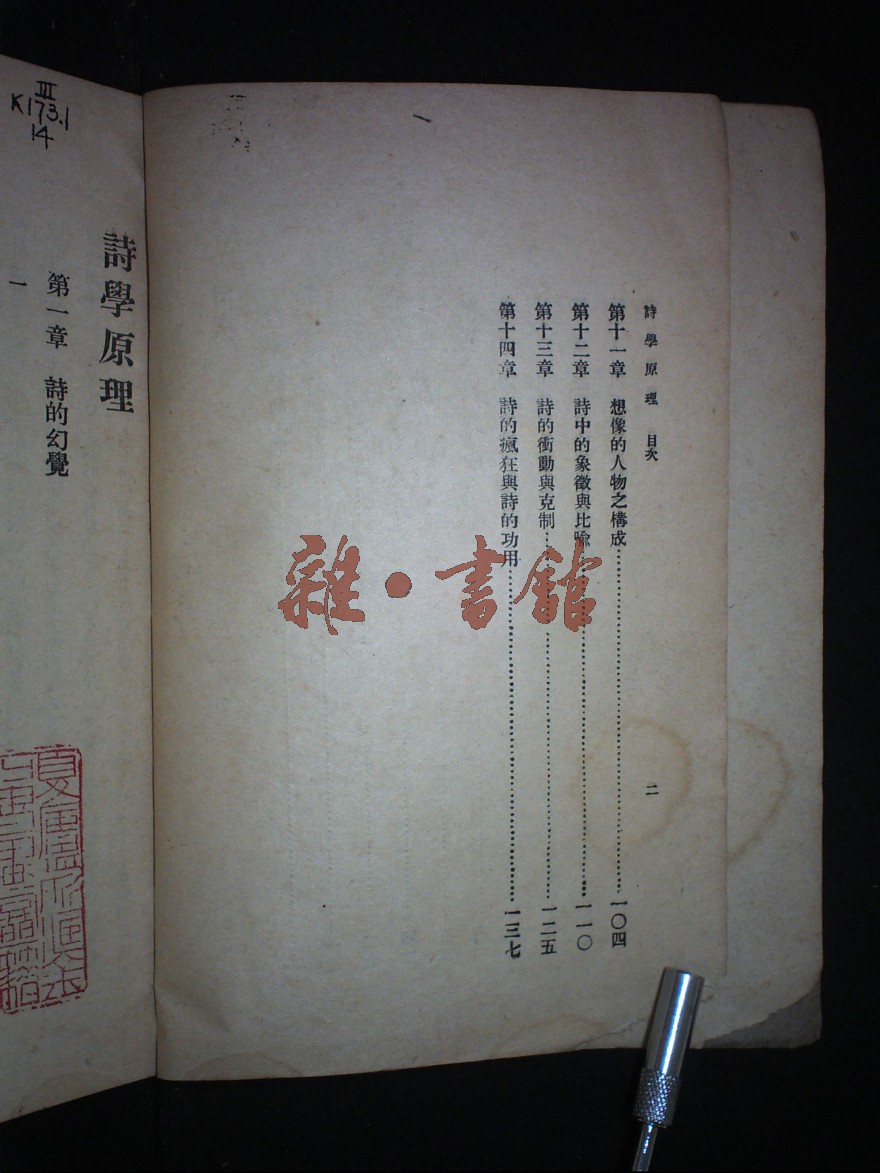 詩學原理 目次
第十一章 想像的人物之構成……一〇四
第十二章 詩中的象徵與比喩……一一〇
第十三章 詩的衝動與克制……一二五
第十四章 詩的瘋狂與詩的功用……一三七
二
雜·書館
III
K173.1
14
詩學原理
第一章 詩的幻覺
一